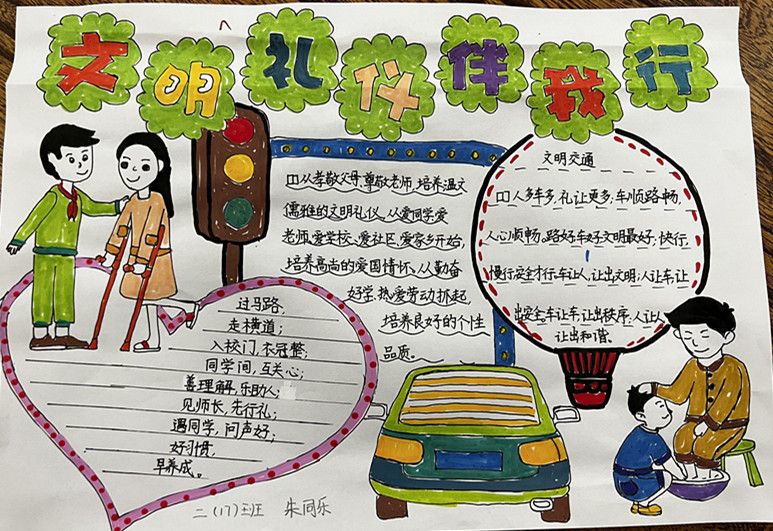 文明礼仪伴我行
口从孝敬父母、尊敬老师、培养温文
儒雅的文明礼仪。从爱同学爱
老师、爱学校、爱社区、爱家乡开始,
培养高尚的爱国情怀。从勤奋
好学、热爱劳动抓起,
培养良好的个性
品质。
文明交通
口人多车多,礼让更多;车顺路畅,
人心顺畅。路好车好文明最好;快行
慢行安全才行。车让人,让出文明;人让车,让
出安全;车让车,让出秩序,人让人
让出和谐。
过马路,
走横道;
入校门,衣冠整;
同学间,互关心;
善理解,乐助人;
见师长,先行礼;
遇同学,问声好;
好习惯,
早养成。
二(17)班 朱同乐